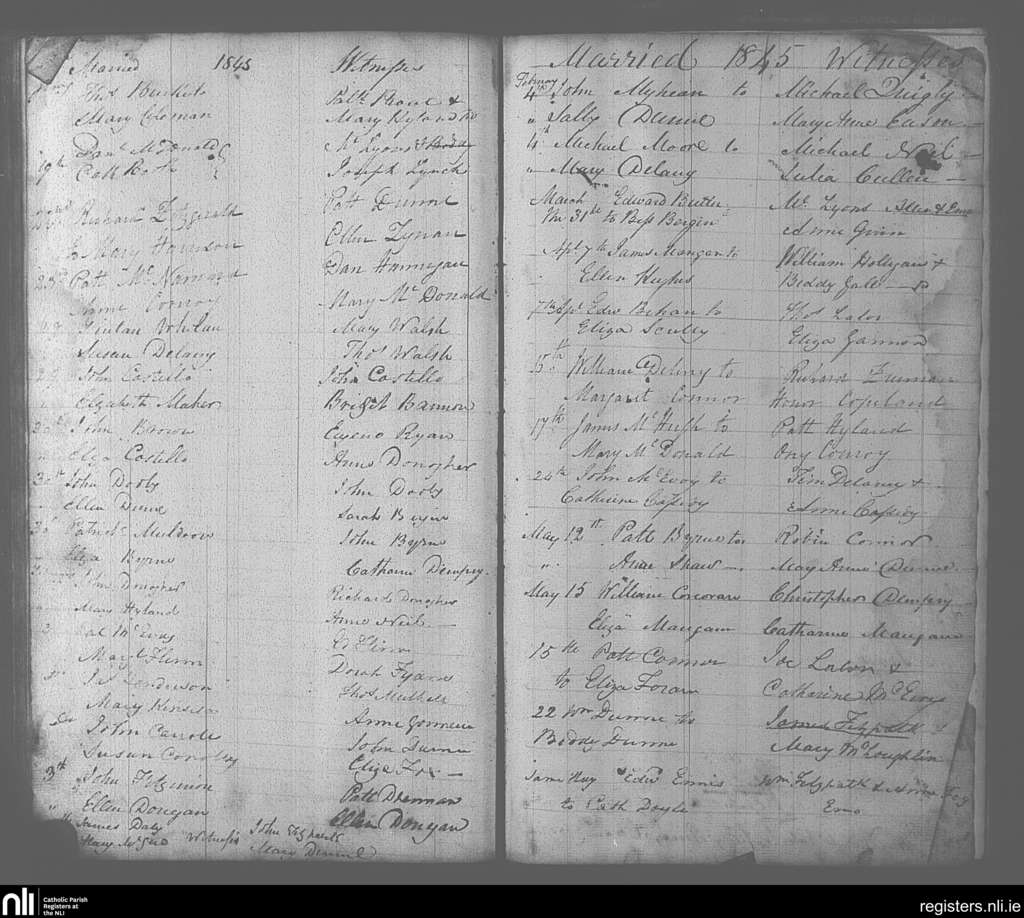 Married 1845 Witnesses
Thos
Mary Coleman Mary Hyland
Danl McDonald Mr Lyons
Cath Joseph Lynch
Richard Fitzgerald Patt Dunne
Mary Harrison Ellen Lynan
23rd Patt McNamara Dan Hannegan
Anne Conroy Mary McDonald
Fintan Whelan Mary Walsh
Susan Delany Thos Walsh
John Costello John Costello
Elizabeth Maher Bridget Bannon
John Brown Eugene Ryan
Eliza Costello Anne Donogher
John Dooly John Dooly
Ellen Dunne Sarah
Patrick Muldoon John Byrne
Eliza Byrne Catharine Dempsey
John Donogher Richard Donogher
Mary Hyland Anne Neil
McEvoy Ed Flinn
Mary Flinn Dorah
Jas Henderson Thos
Mary Kinsela Anne Gorman
John Carroll John Dunne
Susan Conolly Eliza Fox
3th John Patt Drennan
Ellen Dongan Ellen Dongan
James Daly Witnesses John Fitzpatk
Mary Mary Dunne
Married 1845 Witnesses
February
4th John Myhean to Michael Quigly
" Sally Dunne Mary Anne Cason
4th Michael Moore to Michael Neil
" Mary Delany Julia Cullen
March Edward Butler Mr Lyons & Emo
The 31st to Bess Bergin Anne Gorin
Apl 7th James Mangan to William Holligan &
Ellen Hughes Biddy Gale
7th Apr Edw Behan to Thos Lalor
Eliza Scully Eliza Gannon
15th William Delany to Richard
Margaret Connor Honor Copeland
17th James McHugh to Patt Hyland
Mary McDonald Ony Conroy
24th John McEvoy to Tim Delany &
Catherine Cassidy Anne Cassidy
May 12th Patt Byrne to Robin Connor
" Anne Shaw May Anne Dunne
May 15 William Corcoran Christopher Dempsey
Eliza Mangan Catharine Mangan
15 the Patt Connor Joe Lalor &
to Eliza Foran Catharine McEvoy
22 Wm Dunne to James Fitzpatk
Biddy Dunne Mary McLoughlin
Same day Edw Ennis Wm Fitzpatk & Anne
to Cath Doyle Emo
nli
Catholic Parish
Registers at
the NLI
registers.nli.ie